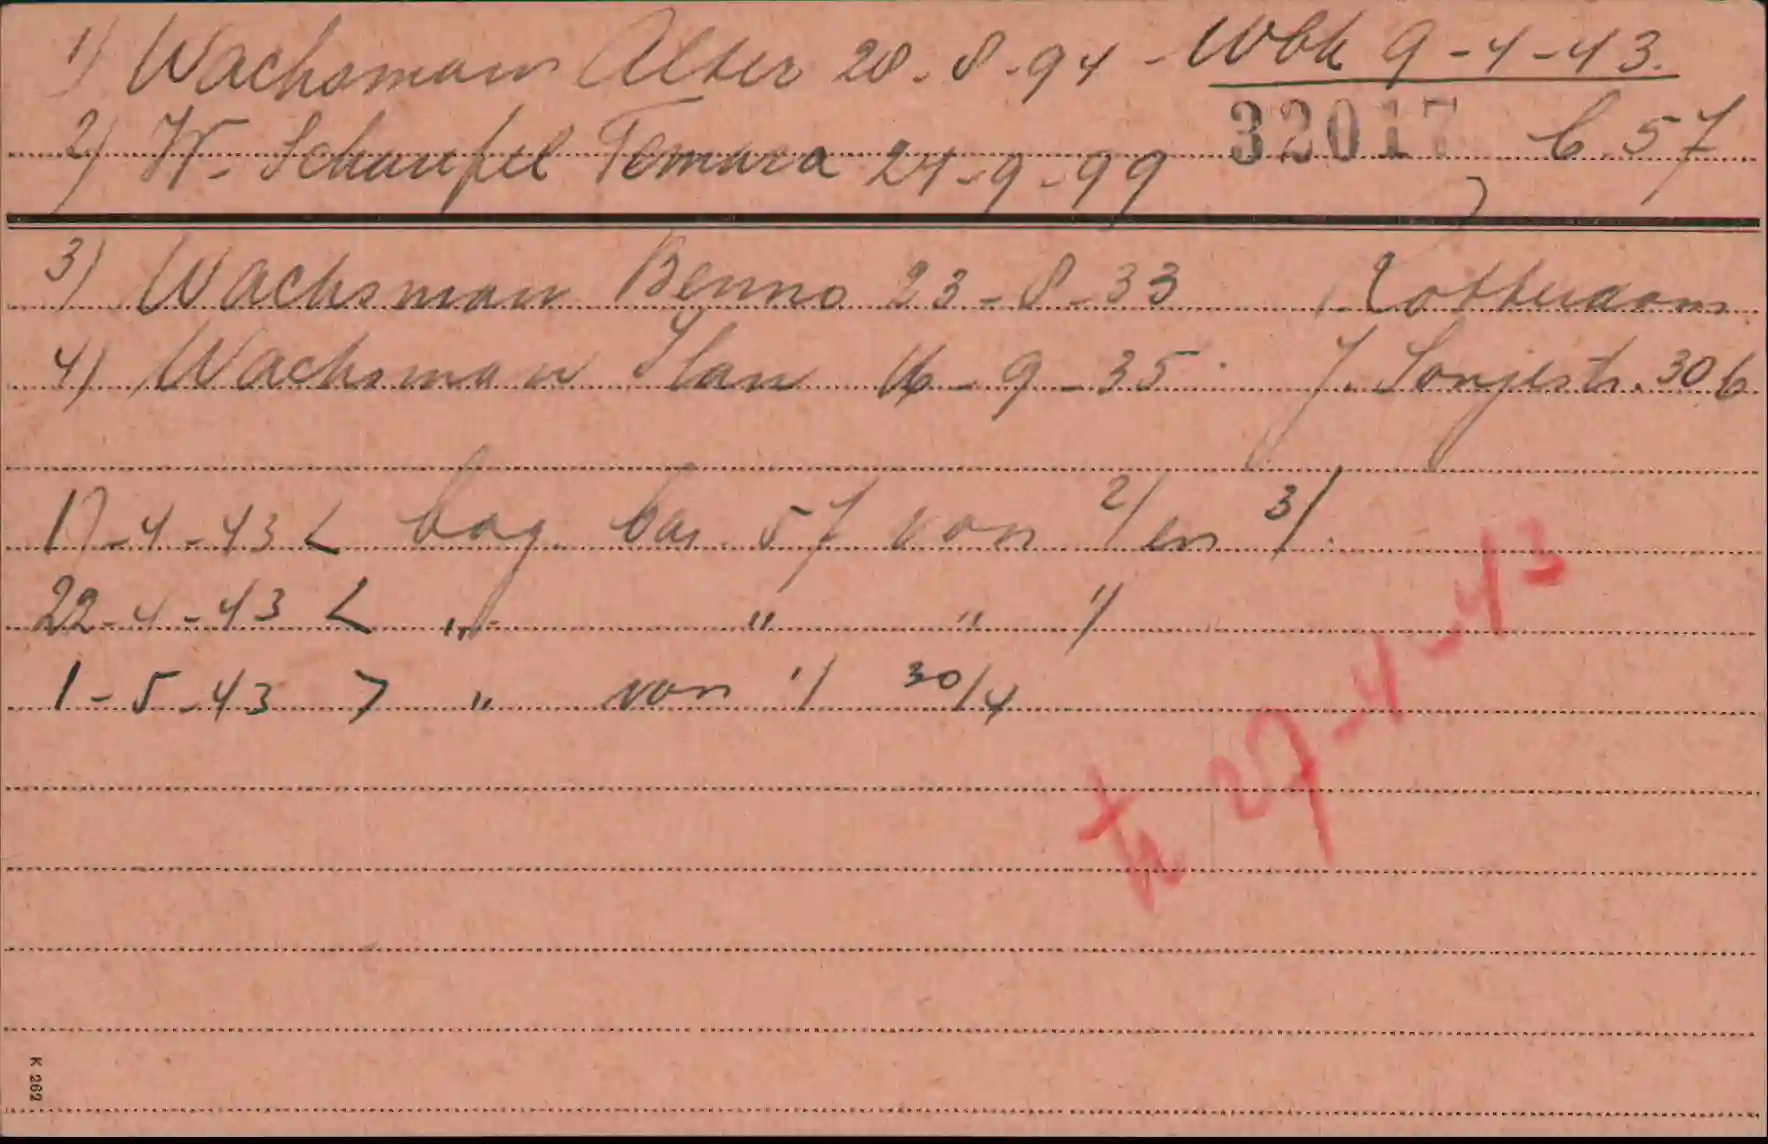 1) Wachsman Alter 28-8-94 - Wbk 9-4-43.
32017 b 57
2) W- Schaufel Temara 24-9-99
3) Wachsman Benno 23-8-33 Rotterdam
4) Wachsman Ilan 16-9-35 J. Sonjestr. 30b
17-4-43 < bag. bar. 57 van 2/ en 3/.
22-4-43 < " " " 1/
1-5-43 > " van 1/ 30/4
27-4-43
K 262